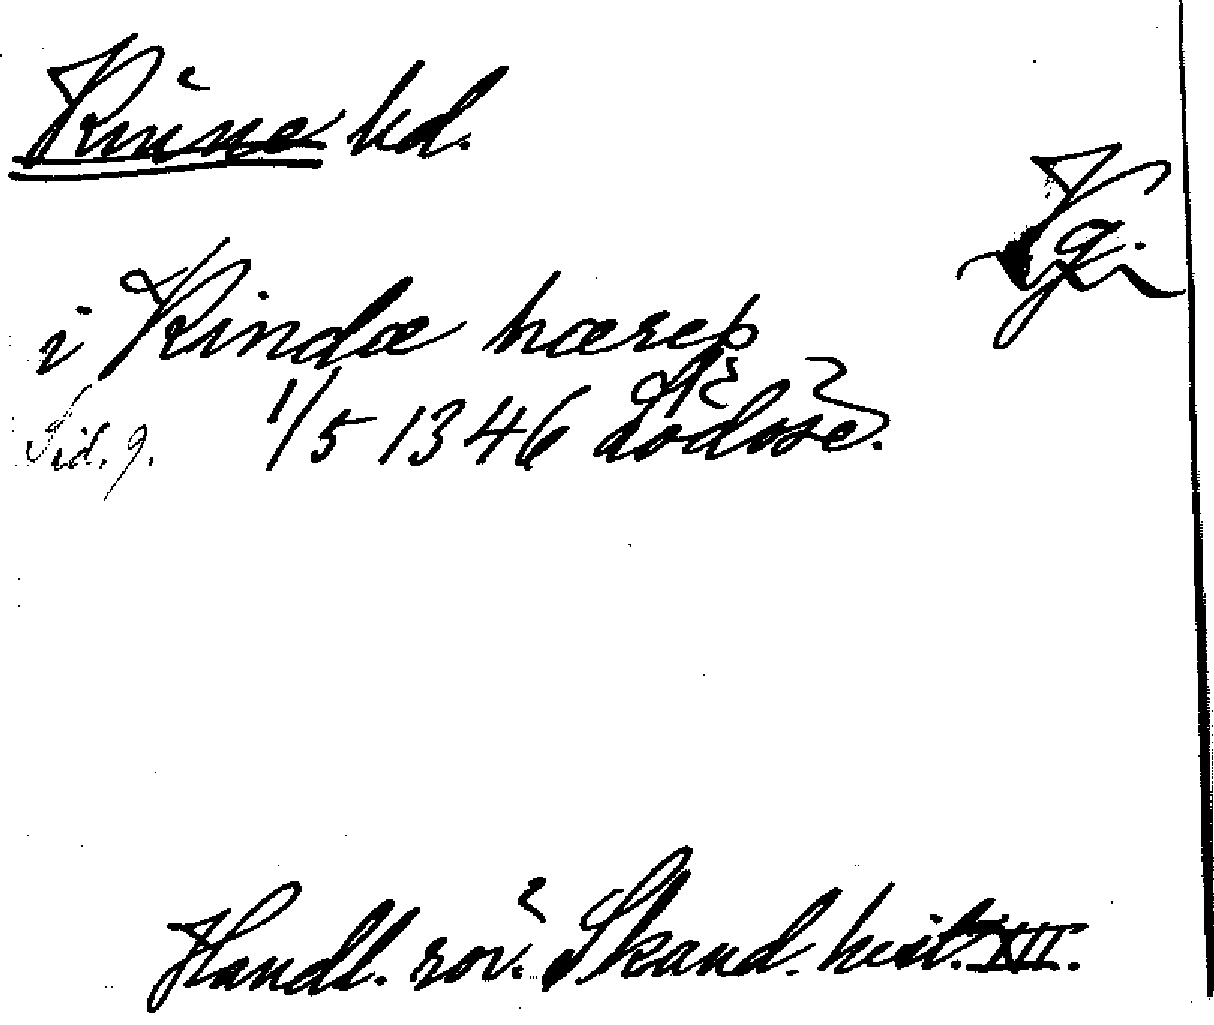 Kinne hd.
Vg.
i Kindæ hæreþ
Sid. 9. 1/5 1346 Lödöse.
Handl. rör. Skand. hist. XVI.